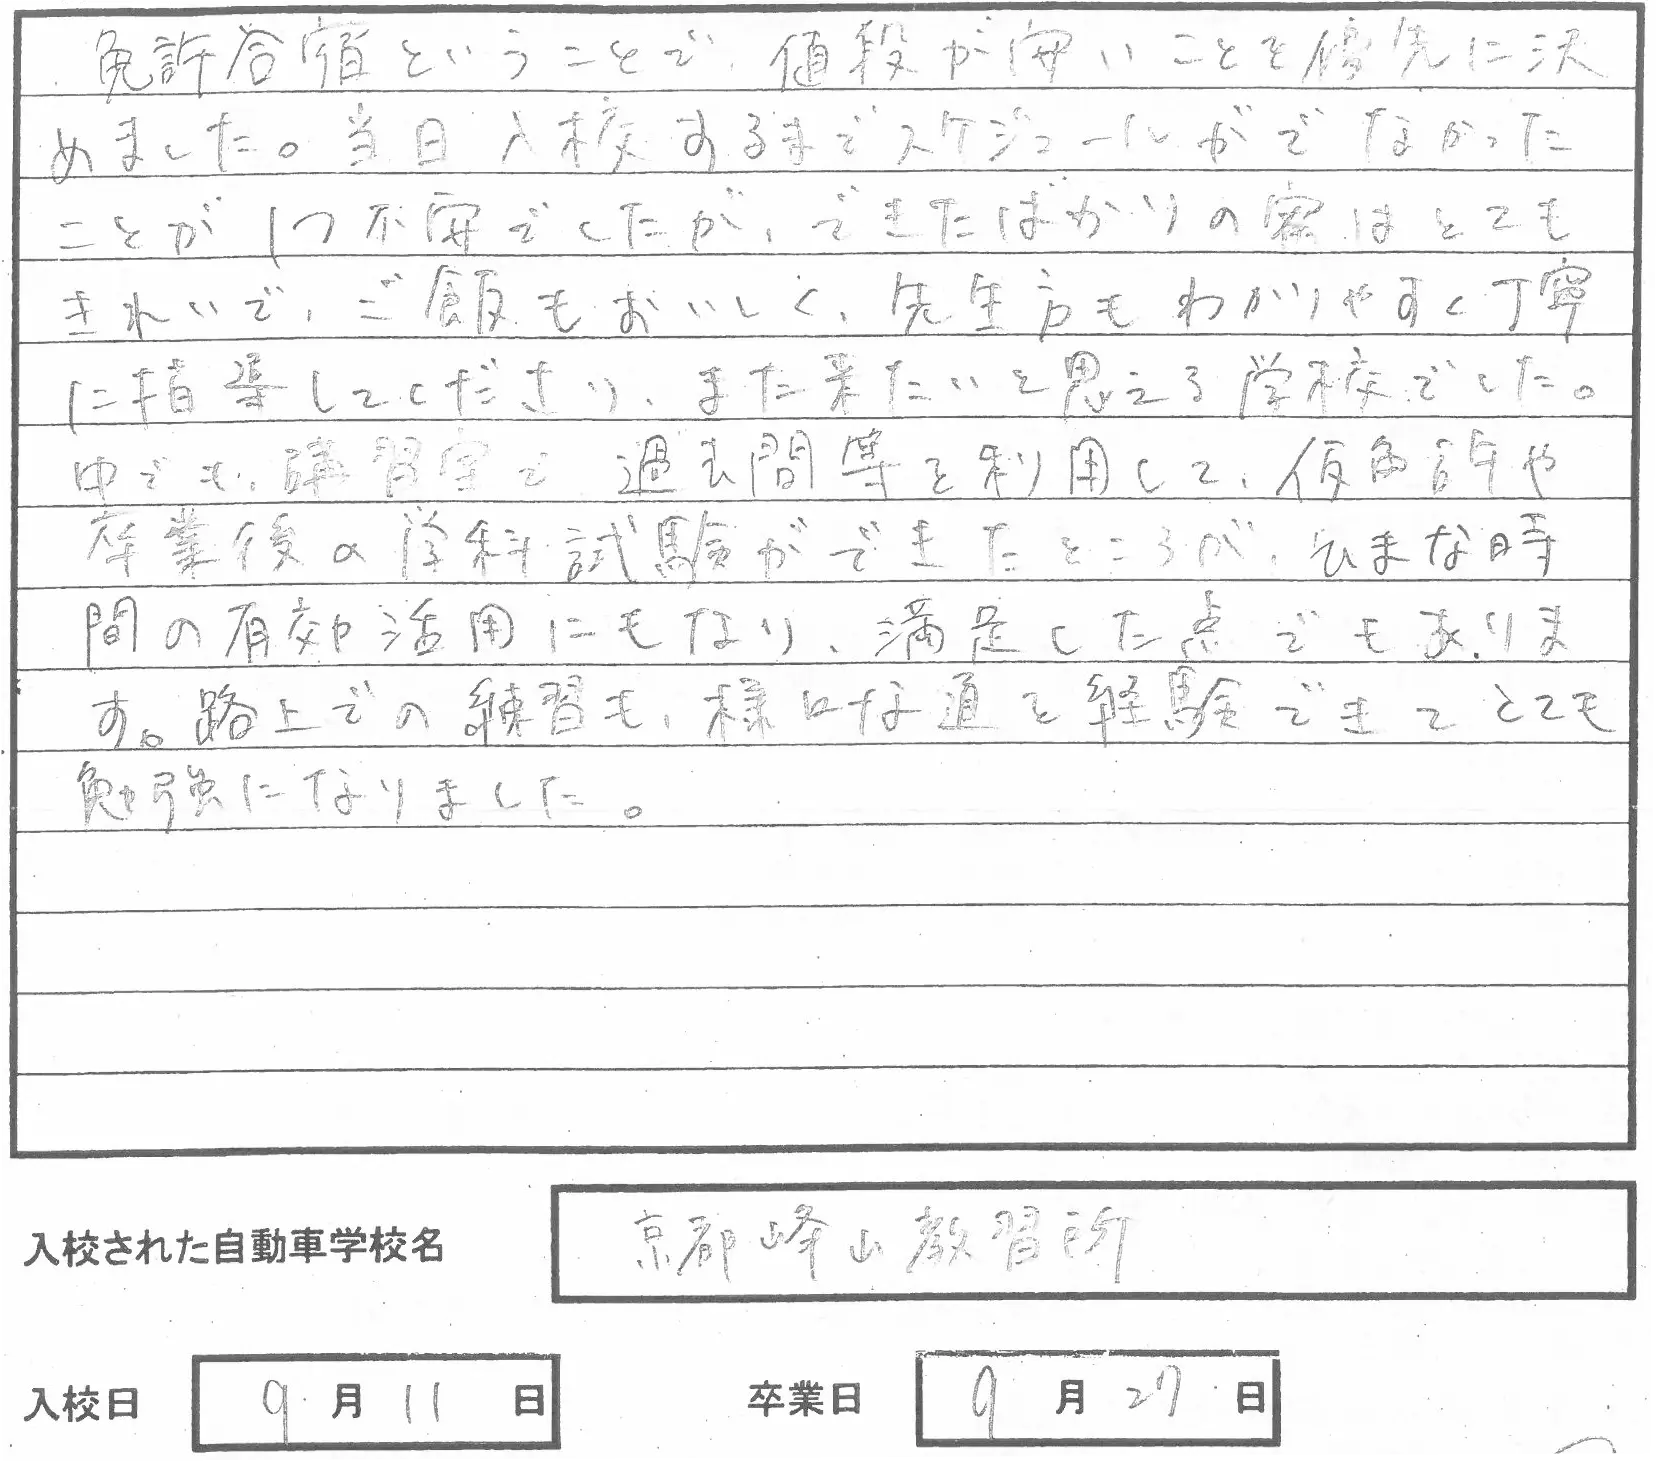 免許合宿ということで、値段が安いことを優先に決
めました。当日入校するまでスケジュールがでなかった
ことが1つ不安でしたが、できたばかりの寮はとても
きれいで、ご飯もおいしく、先生方もわかりやすく丁寧
に指導してくださり、また来たいと思える学校でした。
中でも、講習室で過去問等を利用して、仮免許や
卒業後の学科試験ができたところが、ひまな時
間の有効活用にもなり、満足した点でもありま
す。路上での練習も、様々な道を経験できてとても
勉強になりました。
入校された自動車学校名 京都峰山教習所
入校日 9月11日 卒業日 9月27日